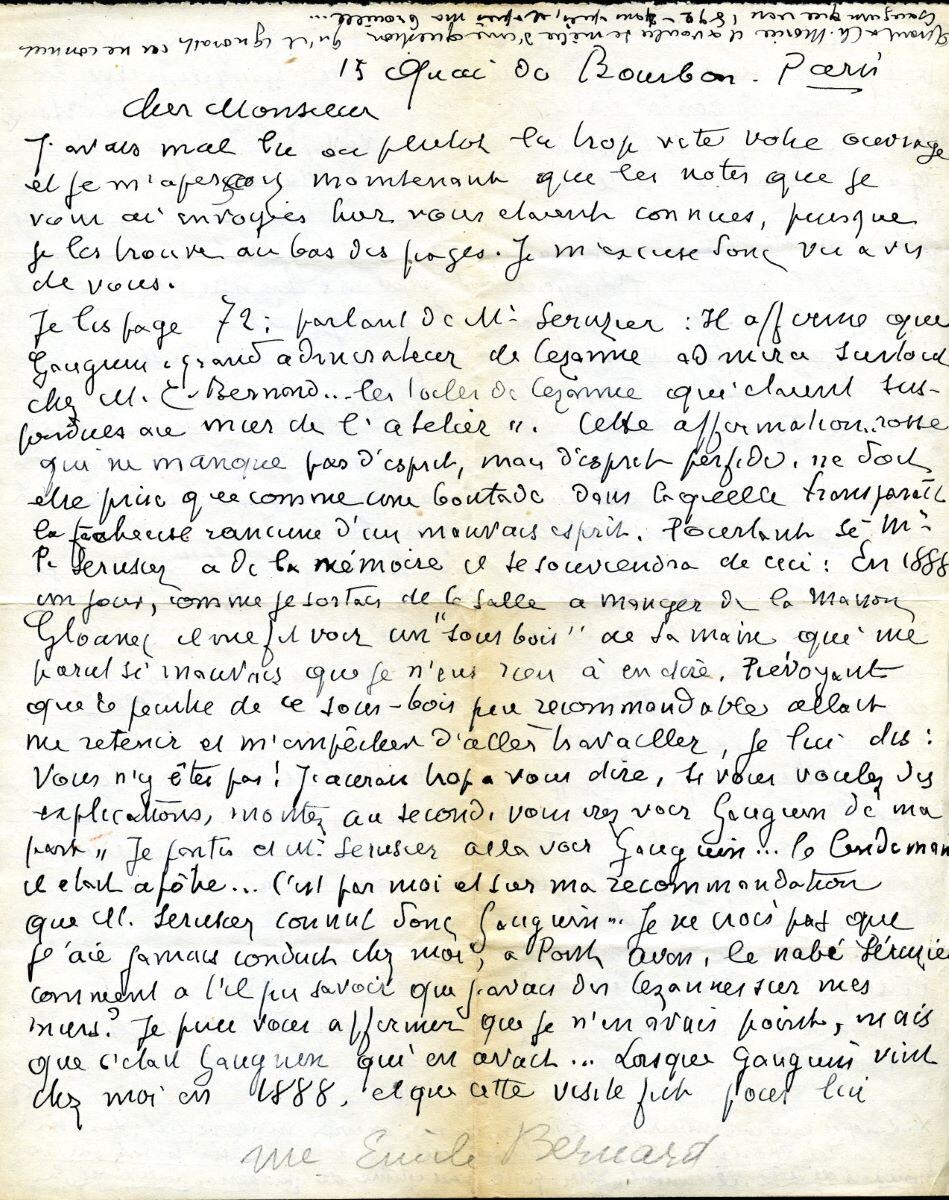 Quant à Ch. Morice il a voulu se mêler d'une question qu'il ignorait car ne connut
Gauguin que vers 1890 - après ma brouille...
15 Quai de Bourbon. Paris
Cher Monsieur
J'avais mal lu ou plutot lu trop vite votre ouvrage
et je m'aperçois maintenant que les notes que je
vous ai envoyées hier vous etaient connues, puisque
je les trouve au bas des pages. Je m'excuse donc vis a vis
de vous.
Je lis page 72 ; parlant de Mr Seruzier : Il affirme que
Gauguin "grand admirateur de Cezanne admira surtout
chez M. E. Bernard... les toiles de Cezanne qui etaient sus-
pendues au mur de l'atelier". Cette affirmation rosse
qui ne manque pas d'esprit, mais d'esprit perfide, ne doit
etre prise que comme une boutade dans laquelle transparaît
la facheuse rancune d'un mauvais esprit. Pourtant si Mr
P. Serusier a de la mémoire il se souviendra de ceci : En 1888
un jour, comme je sortais de la salle a manger de la Maison
Gloanec il me fit voir un "sous bois" de sa main qui me
parut si mauvais que je n'eus rien à en dire. Prévoyant
que le peintre de ce sous-bois peu recommandable allait
me retenir et m'empêcher d'aller travailler, je lui dis :
Vous n'y êtes pas ! J'aurais trop a vous dire, si vous voulez des
explications, montez au second, vous irez voir Gauguin de ma
part" Je partis et Mr Serusier alla voir Gauguin... le lendemain
il etait apôtre... C'est par moi et sur ma recommandation
que M. Serusier connut donc Gauguin... Je ne crois pas que
j'aie jamais conduit chez moi, a Pont Aven, le nabi Séruzier
comment a t'il pu savoir que j'avais des Cezannes sur mes
murs ? Je puis vous affirmer que je n'en avais point, mais
que c'etait Gauguin qui en avait... Lorsque Gauguin vint
chez moi en 1888, et que cette visite fut pour lui
Me Emile Bernard